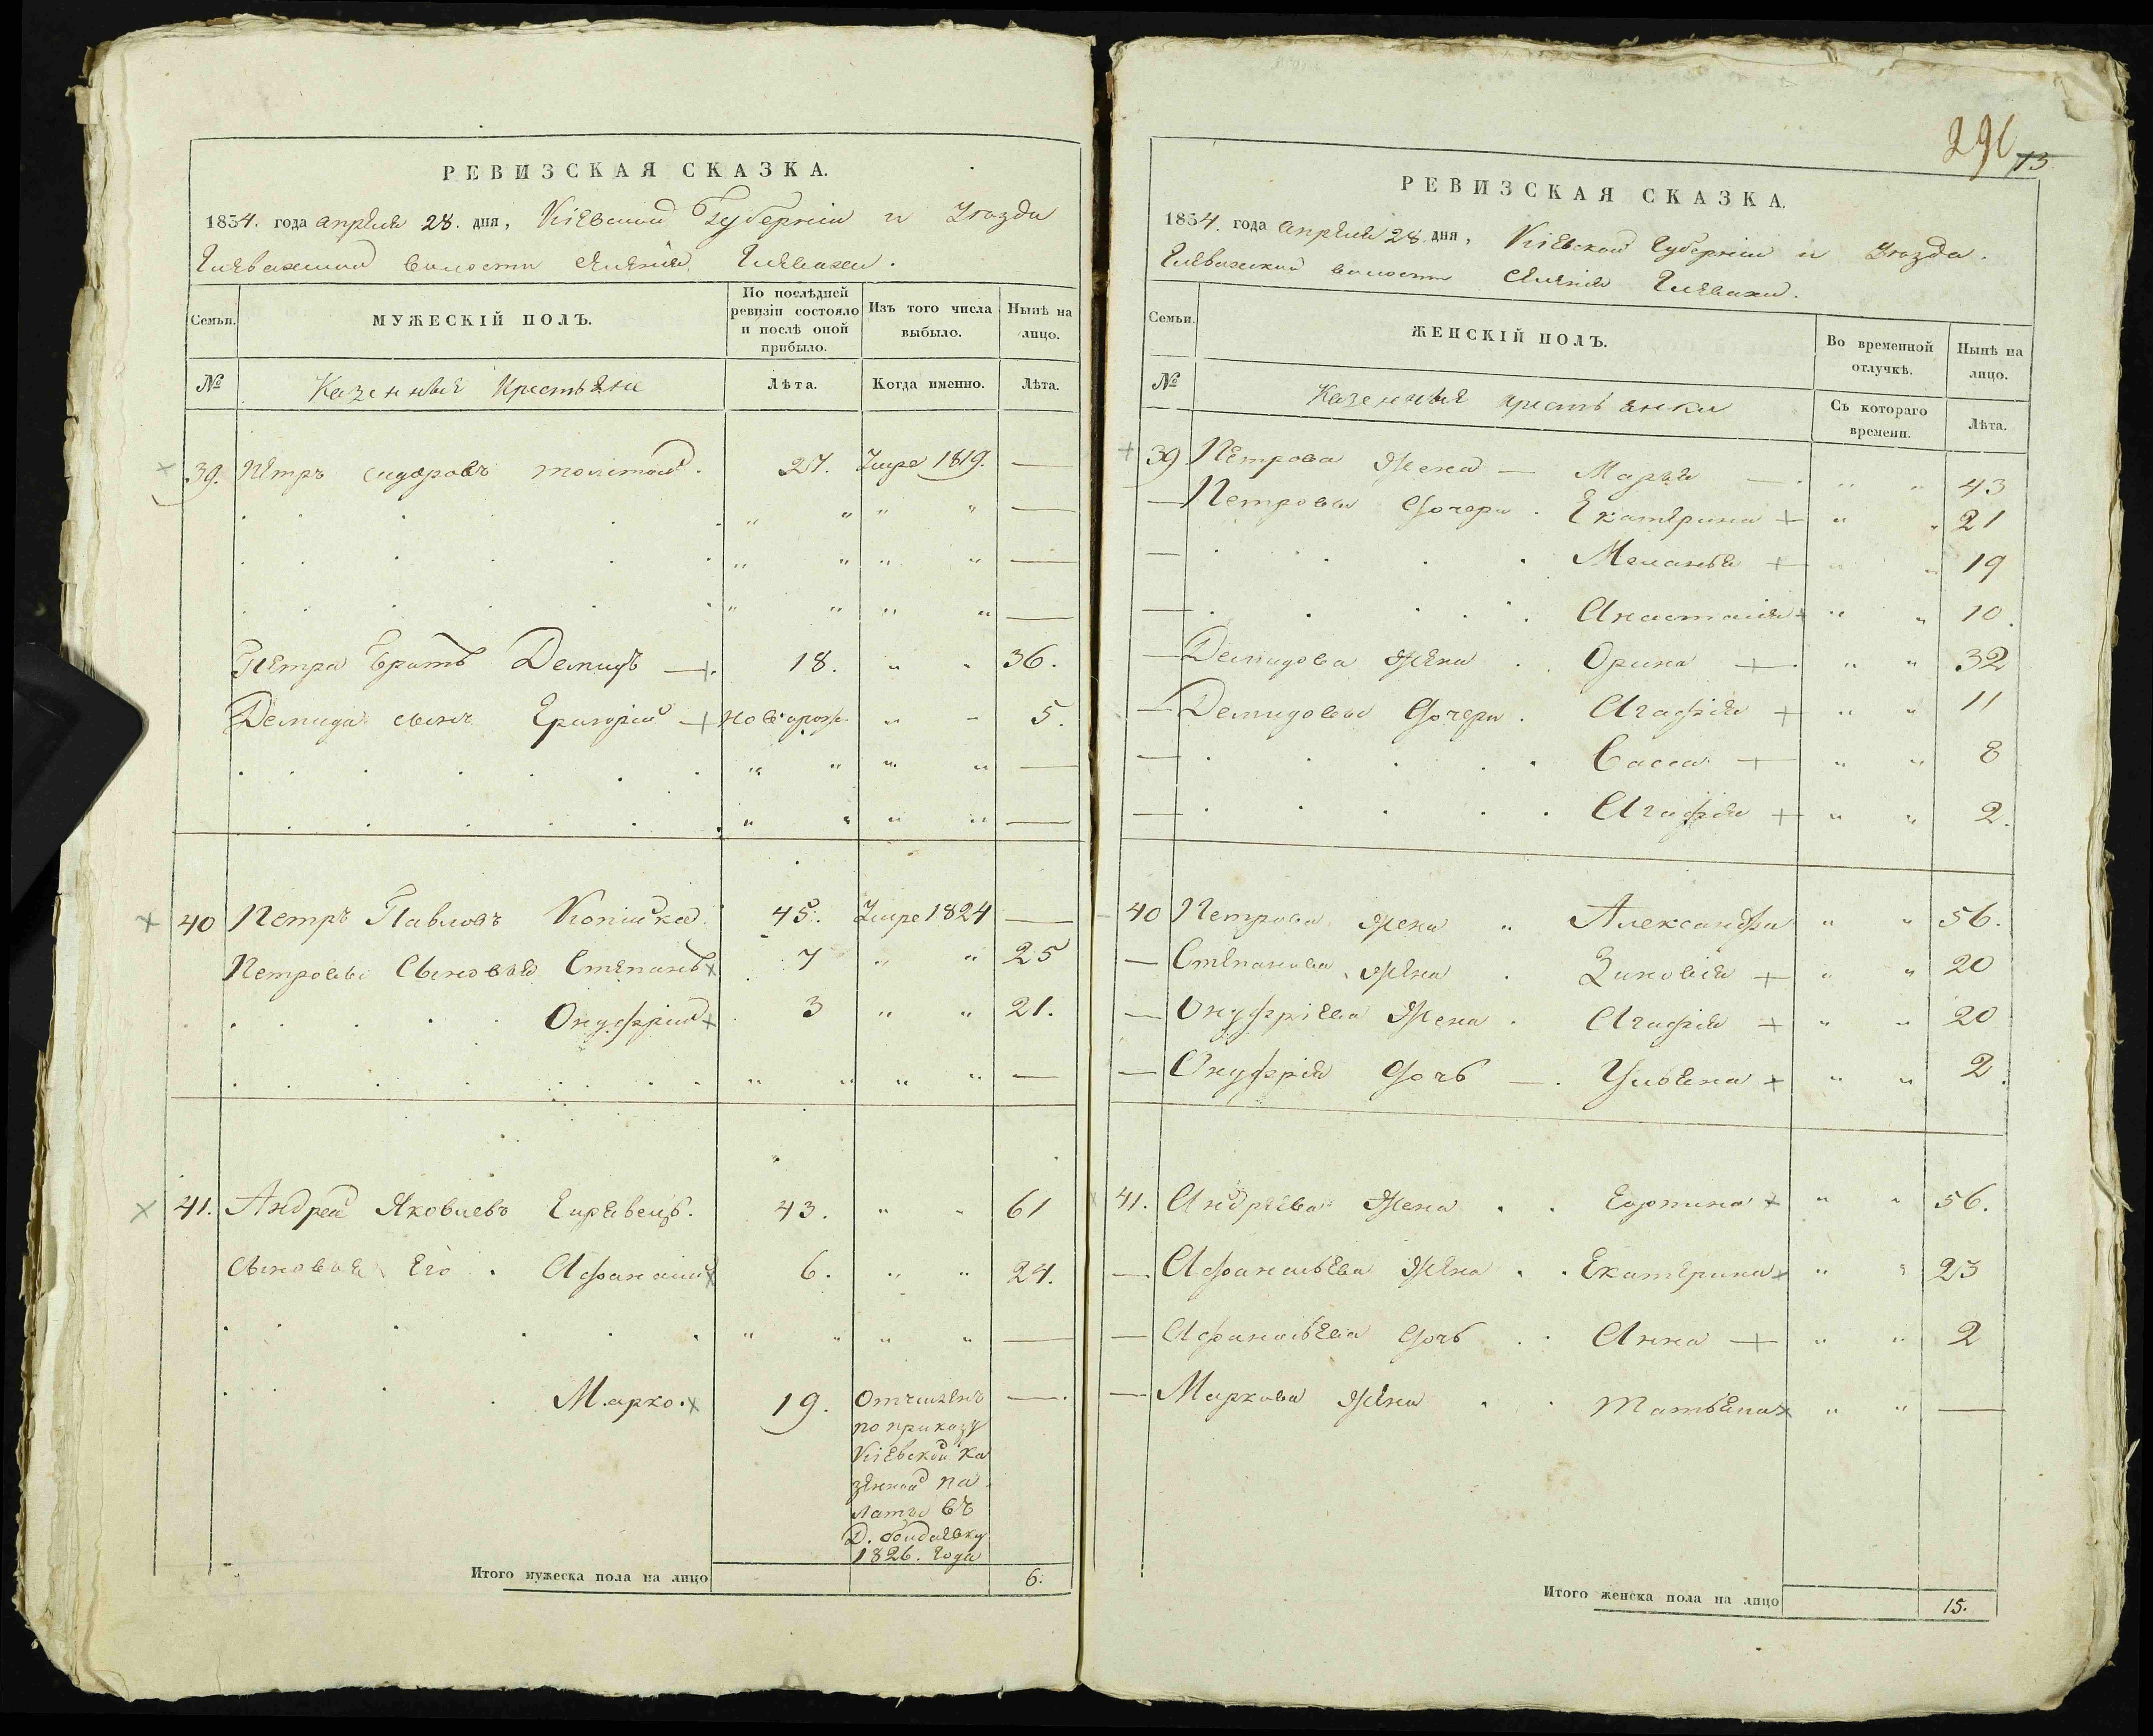 РЕВИЗСКАЯ СКАЗКА.
1834. года апреля 28. дня, Кіевской Губерніи и Уѣзда
Глевахской волости селенія Глевахи.
Семьи. МУЖЕСКІЙ ПОЛЪ. По послѣдней ревизіи состояло и послѣ оной прибыло. Изъ того числа выбыло. Нынѣ на лицо.
№ Казенные Крестьяне Лѣта. Когда именно. Лѣта.
39. Петръ Сидоровъ толстой. 27. Умре 1819. —
Петра братъ Демидъ —+. 18. " " 36.
Демида сынъ Григорій —+ новорожд. " " 5.
40 Петръ Павловъ 45. Умре 1824 —
Петровы Сыновья Степанъ + 7 " " 25
Онуфрій + 3 " " 21.
41. Андрей Яковлевъ 43. " " 61
Сыновья Его. Афанасій x 6. " " 24.
Марко. x 19. Отчисленъ —.
по приказу
Кіевской ка
зенной па
латы въ
Д.
1826. Года
Итого мужеска пола на лицо 6.
291
13
РЕВИЗСКАЯ СКАЗКА.
1834. года апреля 28 дня, Кіевской Губерніи и Уѣзда.
Глевахской волости селенія Глевахи.
Семьи. ЖЕНСКІЙ ПОЛЪ. Во временной отлучкѣ. Нынѣ на лицо.
№ Казенные крестьянки Съ котораго времени. Лѣта.
+ 39 Петрова Жена — Марья —. " " 43
— Петровы дочери. Екатерина + " " 21
— Меланья + " " 19
— Анастасія + " " 10.
— Демидова Жена. Орина +. " " 32
— Демидовы дочери. Агафія + " " 11
— Васса + " " 8
— Агафія + " " 2.
40 Петрова жена " Александра " " 56.
— Степанова жена. Зиновія + " " 20
— Онуфріева Жена. Агафія + " " 20
— Онуфрія дочь —. Ульяна + " " 2.
41. Андреева Жена.. x " " 56.
— Афанасьева Жена.. Екатерина x " " 23
— Афанасьева дочь.. Анна + " " 2
— Маркова Жена.. Татьяна x " " —
Итого женска пола на лицо 15.